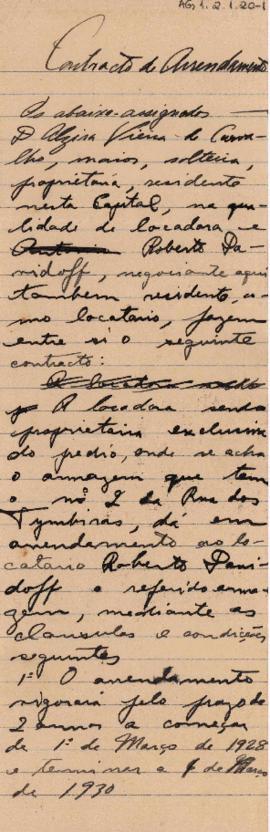 AG1.2.1.20-1
Contracto de Arrendamento
Os abaixo-assignados
D Alzira Vieira de Carva-
lho, maior, solteira,
proprietaria, residente
nesta Capital, na qua-
lidade de locadora e
Roberto Da-
vidoff, negociante aqui
tambem residente, co-
mo locatario, fazem
entre si o seguinte
contracto:
A locadora sendo
proprietaria exclusiva
do predio, onde se acha
o armazem que tem
o nº 2 da Rua dos
Tymbiras, dá em
arrendamento ao lo-
catario Roberto Davi-
doff o referido arma-
zem, mediante as
clausulas e condições
seguintes
1ª O arrendamento
vigorará pelo prazo de
2 annos a começar
de 1º de Março de 1928
e terminar a 1 de Março
de 1930